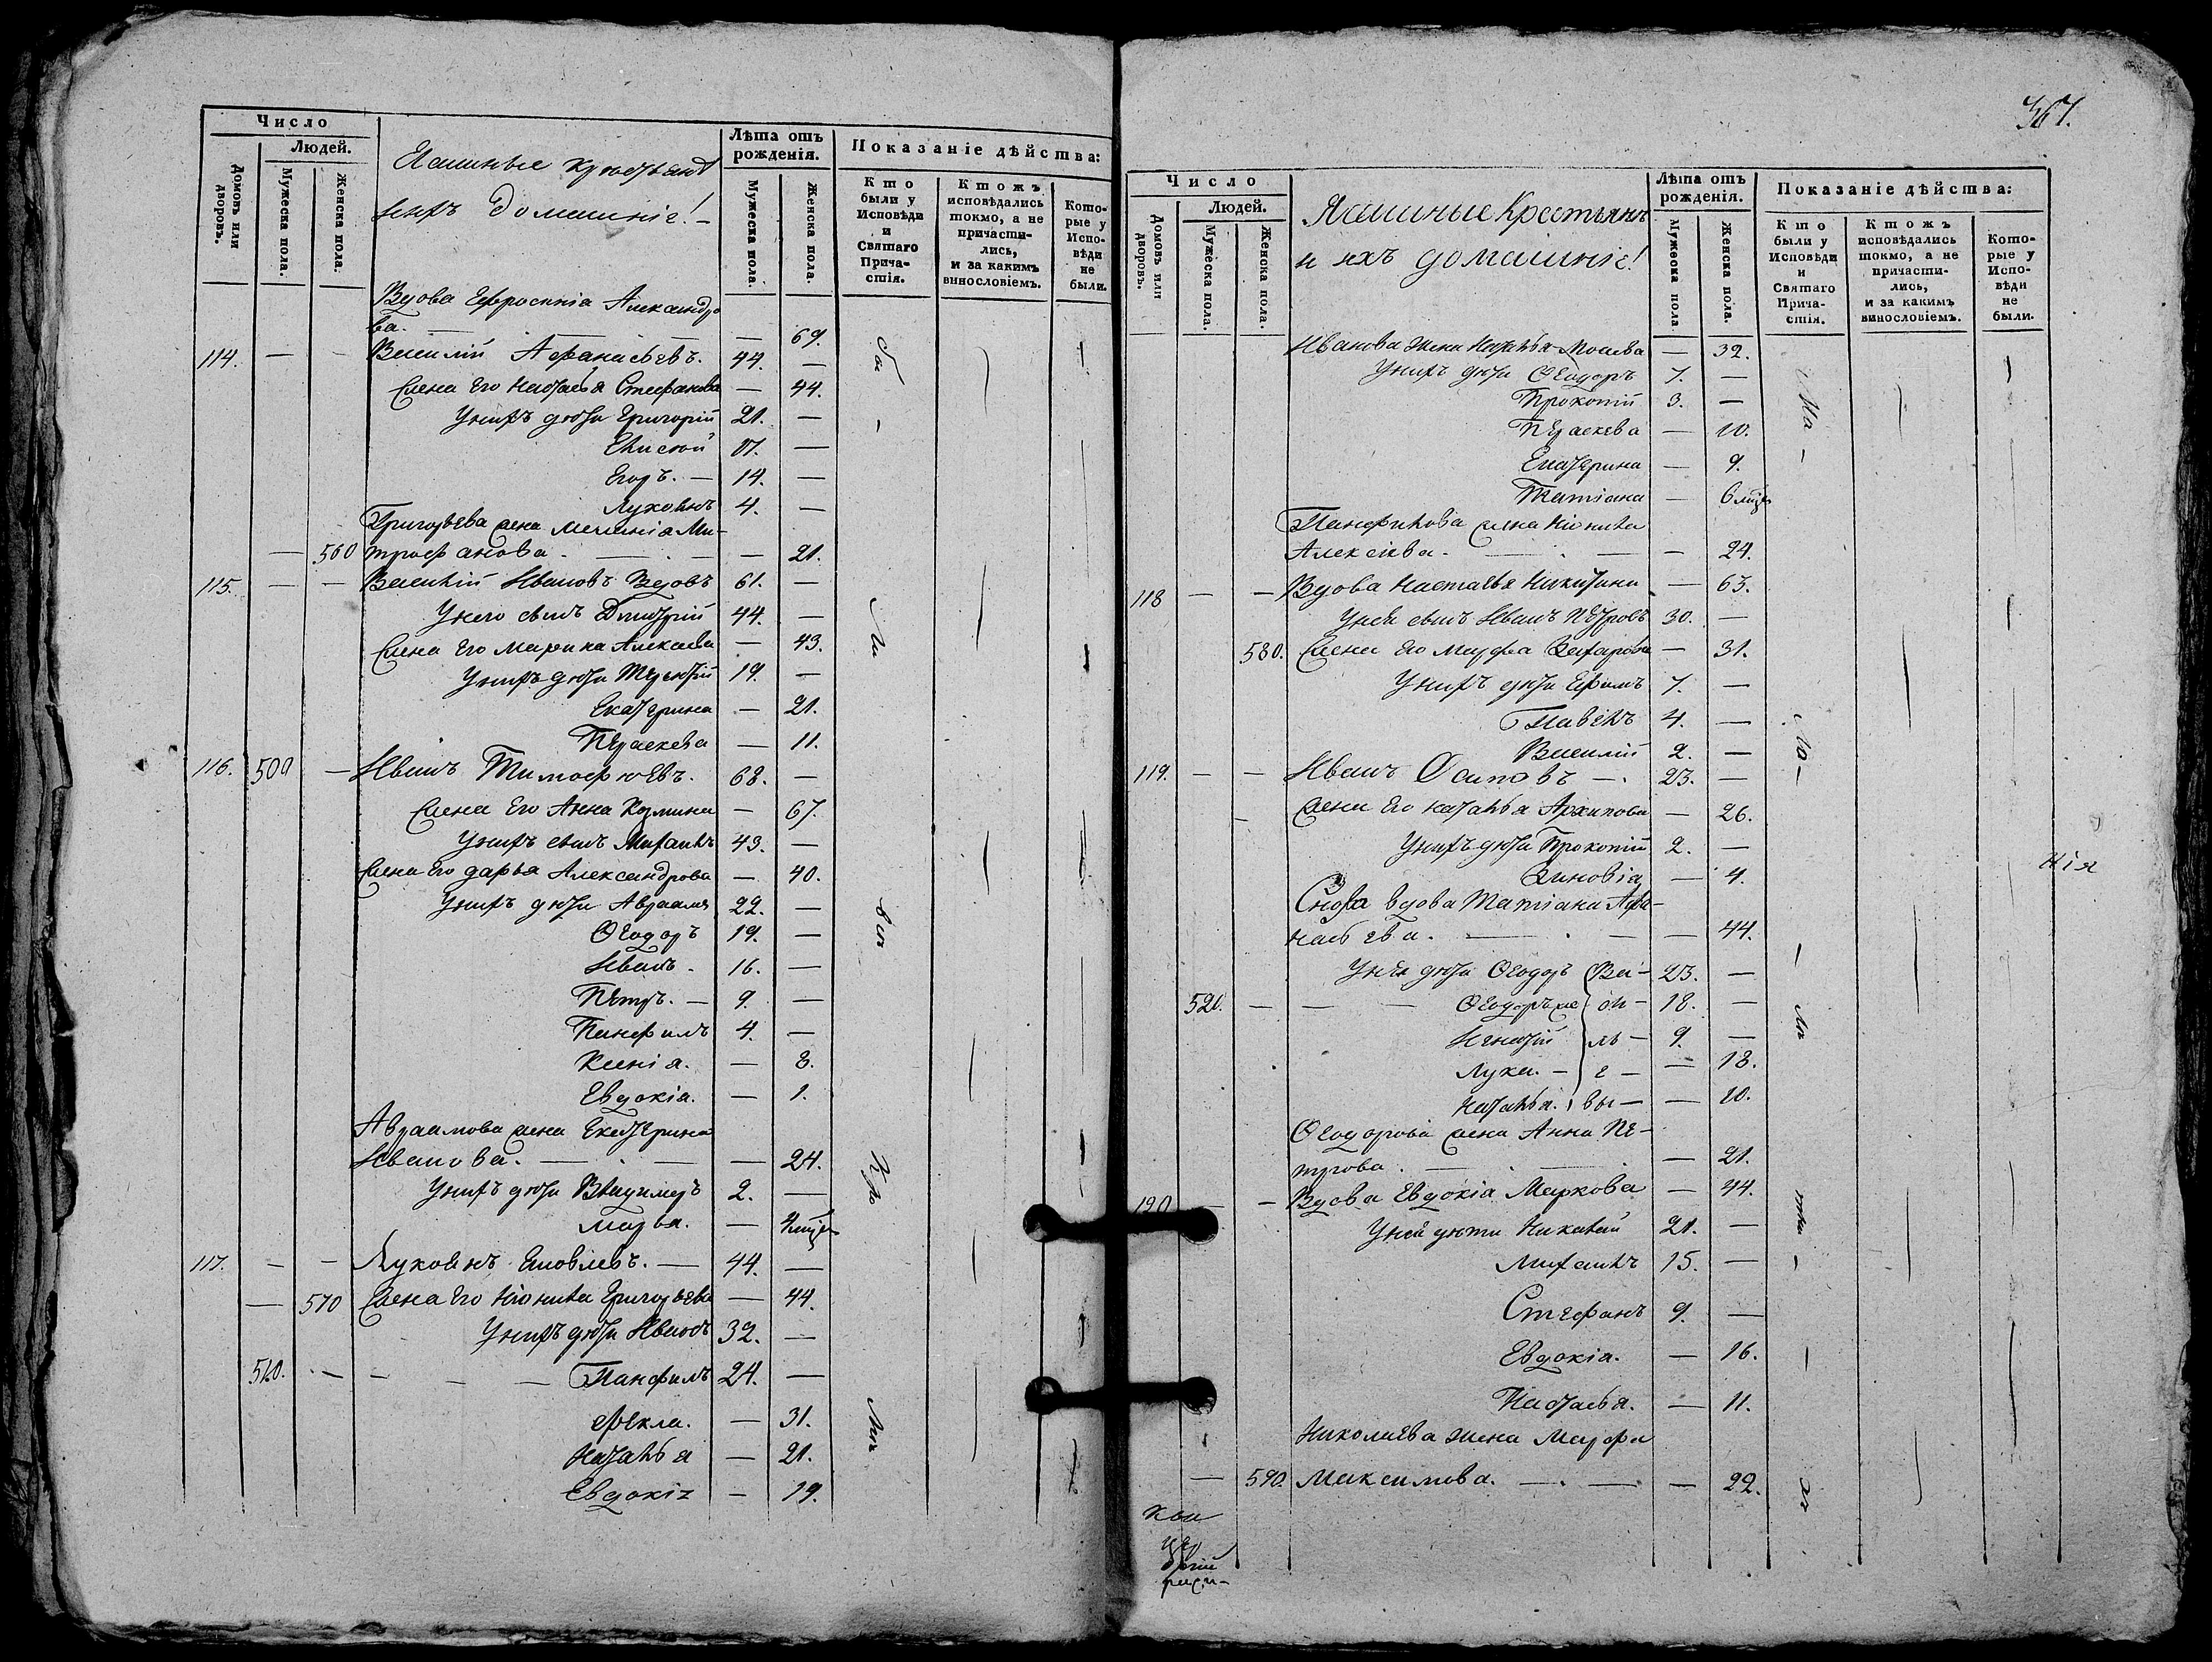 Число
Людей.
Домовъ или дворовъ.
Мужеска пола.
Женска пола.
Лѣта отъ рожденія.
Мужеска пола.
Женска пола.
Показаніе дѣйства:
Кто были у Исповѣди и Святаго Прича- стія.
Ктожъ исповѣдались токмо, а не причасти- лись, и за какимъ винословіемъ.
Кото- рые у Испо- вѣди не были.
домашніе!
Вдова Ефросинія Александро
ва. — — 69.
114. — - Василій Афанасьевъ. 44. —
жена Его Настасья Стефанова — 44.
Унихъ дѣти Григорій 21. —
Елисей 17. —
Егоръ. — 14. —
Лукіянъ 4. —
Григорьева жена Меланія Ми-
— 560 трофанова. — — 21.
115. — — Василій Ивановъ Вдовъ 61. —
Унего сынъ Дмитрій 44. —
жена Его Марина Алексѣева — 43.
Унихъ дѣти Терентій 19. —
Екатерина — 21.
Параскева — 11.
116. 509 — Иванъ Тимофѣевъ. 68. —
жена Его Анна Козмина — 67.
Унихъ сынъ Михаилъ 43. —
жена Его дарья Александрова — 40.
Унихъ дѣти Авраамъ 22. —
Ѳеодоръ 19. —
Иванъ. 16. —
Петръ. — 9. —
Панфилъ 4. —
Ксенія. — 8.
Евдокія. — 1.
Авраамова жена Екатерина
Иванова. — — — 24.
Унихъ дѣти Владимеръ 2. —
марья. —
117. — — Лукіянъ Яковлевъ. — 44. —
— 570 жена Его Неонила Григорьева — 44.
Унихъ дѣти Иванъ 32. —
510. — — — — Панфилъ 24. —
Фекла. — 31.
Наталья — 21.
Евдокія — 19.
367.
Число
Людей.
Домовъ или дворовъ.
Мужеска пола.
Женска пола.
Яшинные Крестьяне
и ихъ домашніе!
Лѣта отъ рожденія.
Мужеска пола
Женска пола.
Показаніе дѣйства:
Кто были у Исповѣди и Святаго Прича- стія.
Ктожъ исповѣдались токмо, а не причасти- лись, и за какимъ винословіемъ.
Кото- рые у Испо- вѣди не были.
Иванова жена Наталья — 32.
Унихъ дѣти Ѳеодоръ 7. —
Прокопій 3. —
Параскева — 10.
Екатерина — 9.
Татіана — 6
Панфилова жена Неонила
Алексѣева. — — — 24.
118 — — Вдова Настасья Никитина — 63.
Унея сынъ Иванъ Петровъ 30. —
580. жена Его Марфа Захарова — 31.
Унихъ дѣти Ефимъ 7. —
Павелъ 4. —
Василій 2. —
119. — — Иванъ Осиповъ — 23. —
жена Его Наталья Архипова — 26.
Унихъ дѣти Прокопій 2. —
Зиновія — 4.
Сноха вдова Татіана Афа-
насьева. — — — 44.
Унея дѣти Ѳеодоръ Ва- 23. —
520. — — — Ѳеодоръже си- 18. —
Игнатій ль- 9. —
Лука. — е — — 18.
Наталья. вы — — 10.
Ѳеодорова жена Анна Пе-
трова. — — — 21.
120 — — Вдова Евдокія Маркова — 44.
Унея дѣти Николай 21. —
Михаилъ 15. —
Стефанъ 9. —
Евдокія. — 16.
Настасья. — 11.
Николаева жена Марфа
— 590. Максимова. — — — 22.
нія